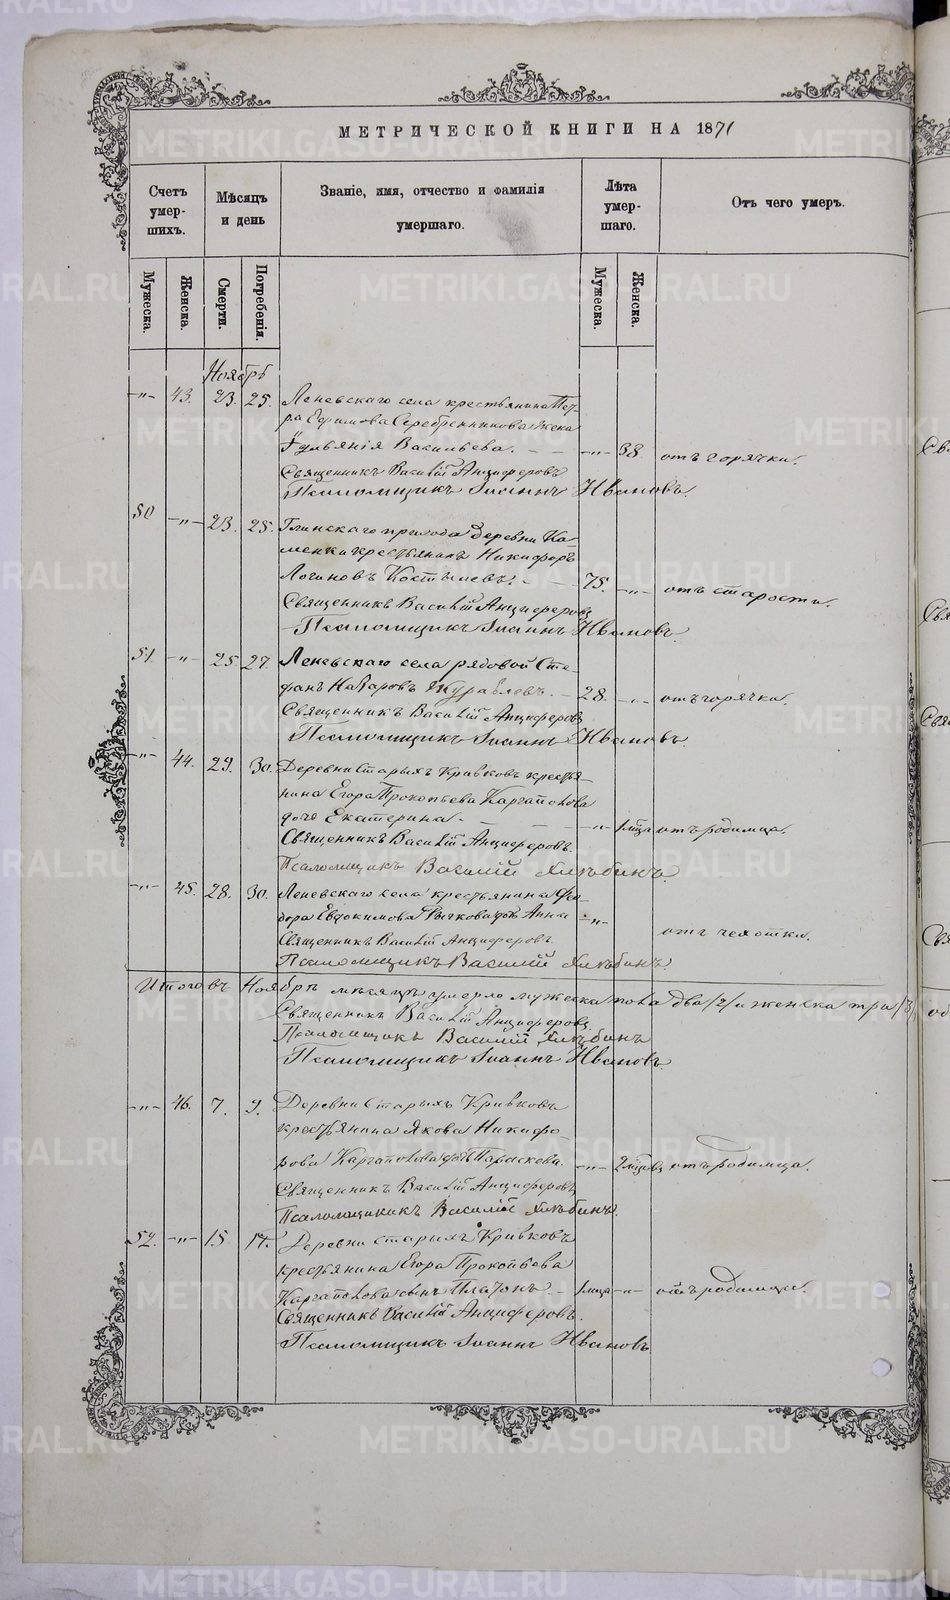 МЕТРИЧЕСКОЙ КНИГИ НА 1871
Счетъ умер- шихъ.
Мѣсяцъ и день
Званіе, имя, отчество и фамилія умершаго.
Лѣта умер- шаго.
Отъ чего умеръ.
Мужеска. Женска. Смерти. Погребенія. Мужеска. Женска.
Ноябрь
-"- 43. 23. 25. Леневскаго села крестьянина Пет-
ра Ефимова Серебренникова жена
Іульянія Васильева. - - -"- 38 отъ горячки.
Священникъ Василій Анциферовъ
Псаломщикъ Іоаннъ Ивановъ.
50 -"- 23. 25. Глинскаго прихода деревни Ка-
менки крестьянинъ Никифоръ
Логиновъ Костылевъ. - - - 75. -"- отъ старости.
Священникъ Василій Анциферовъ
Псаломщикъ Іоаннъ Ивановъ.
51. -"- 25 27. Леневскаго села рядовой Сте-
фанъ Назаровъ Журавлевъ. - 28. -"- отъ горячки.
Священникъ Василій Анциферовъ
Псаломщикъ Іоаннъ Ивановъ.
-"- 44. 29. 30. Деревни Старыхъ Кривковъ крестья-
нина Егора Прокопьева Каргаполова
дочь Екатерина. - - - -"- 1 мца отъ родимца.
Священникъ Василій Анциферовъ.
Псаломщикъ Василій Хлѣбинъ.
-"- 45. 28. 30. Леневскаго села крестьянина Фе-
дора Евдокимова дочь Анна -"-
отъ чехотки.
Священникъ Василій Анциферовъ.
Псаломщикъ Василій Хлѣбинъ.
Итого въ Ноябрѣ мѣсяцѣ умерло мужеска пола два /2/ и женска три /3/
Священникъ Василій Анциферовъ
Псаломщикъ Василій Хлѣбинъ
Псаломщикъ Іоаннъ Ивановъ
-"- 46. 7. 9. Деревни Старыхъ Кривковъ
крестьянина Якова Никифо
рова Каргаполова дочь Параскева. -"- отъ родимца.
Священникъ Василій Анциферовъ
Псаломщикикъ Василій Хлѣбинъ.
52. -"- 15. 17. Деревни старыхъ Кривковъ
крестьянина Егора Прокопьева
Каргаполова сынъ Платонъ. - 1 мца -"- отъ родимца.
Священникъ Василій Анциферовъ.
Псаломщикъ Іоаннъ Ивановъ
METRIKI.GASO-URAL.RU